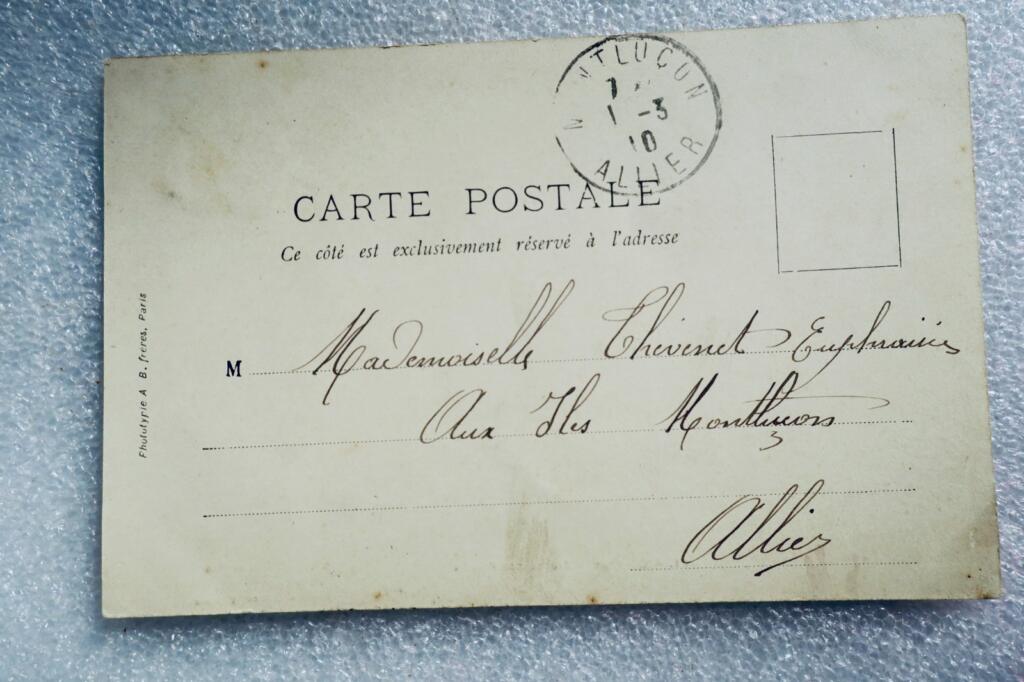 MONTLUÇON
7
1 -3
10
ALLIER
CARTE POSTALE
Ce côté est exclusivement réservé à l'adresse
M Mademoiselle Thévenet
Aux Iles Montluçon
Allier
Phototypie A B. frères, Paris